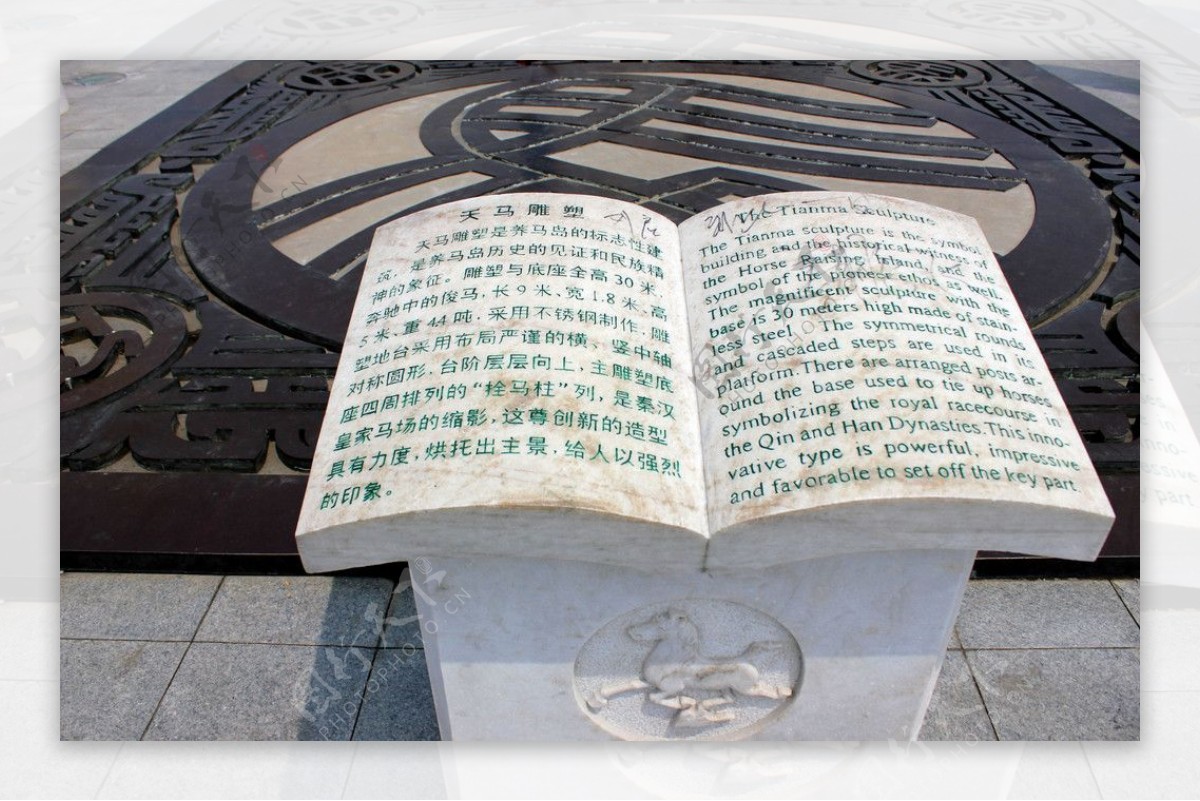 天马雕塑
天马雕塑是养马岛的标志性建
筑，是养马岛历史的见证和民族精
神的象征。雕塑与底座全高30米，
奔驰中的俊马，长9米、宽1.8米、高
5米、重44吨，采用不锈钢制作，雕
塑地台采用布局严谨的横、竖中轴
对称圆形，台阶层层向上，主雕塑底
座四周排列的“拴马柱”列，是秦汉
皇家马场的缩影，这尊创新的造型
具有力度，烘托出主景，给人以强烈
的印象。
The Tianma Sculpture
The Tianma sculpture is the symbol
building and the historical witness of
the Horse Raising Inland, and the
symbol of the pioneer ethos as well.
The magnificent sculpture with the
base is 30 meters high made of stain-
less steel. The symmetrical rounds
and cascaded steps are used in its
platform. There are arranged posts ar-
ound the base used to tie up horses,
symbolizing the royal racecourse in
the Qin and Han Dynasties. This inno-
vative type is powerful, impressive
and favorable to set off the key part.